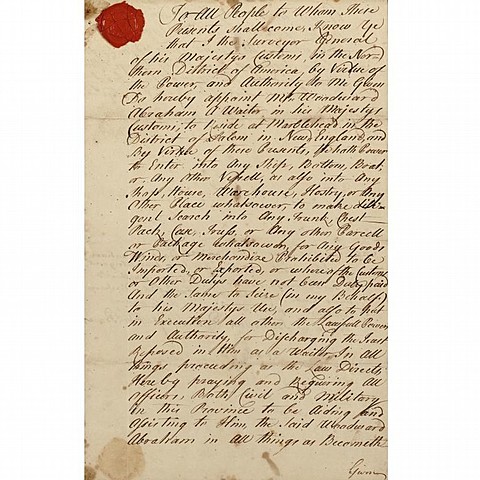 To All People to Whom These
Presents Shall come, Know Ye
that I the Surveyor General
of his Majestys Customs, in the Nor-
thern District of America, by Virtue of
the Power, and Authority to Me Given
Do hereby appoint Mr. Woodward
Abraham a Waiter in his Majestys
Customs, to Reside at Marblehead in the
District of Salem in New England, and
By Virtue of these Presents, he hath Power
to Enter into Any Ship, Bottom, Boat,
or Any Other Vessell, as also into Any
Shop, House, Warehouse, Hostry, or Any
Other Place whatsoever, to make dilli-
gent Search into Any Trunk, Chest
Pack, Case, Truss, or Any other Parcell
or Package whatsoever, for Any Goods,
Wines, or Merchandize Prohibited to be
Imported, or Exported, or whereof the Customs
or Other Dutys have not been Duly paid
And the Same to Seize (in my Behalf)
to his Majestys Use, and also to Put
in Execution all other the Lawfull Powers
and Authority, for Discharging the Trust
Reposed in Him as a Waiter, In all
things proceeding as the Law Directs
Hereby praying and Requiring All
Officers, Both Civil and Military
in this Province to be Aiding and
Assisting to Him, the Said Woodward
Abraham in All things as Becometh
Given